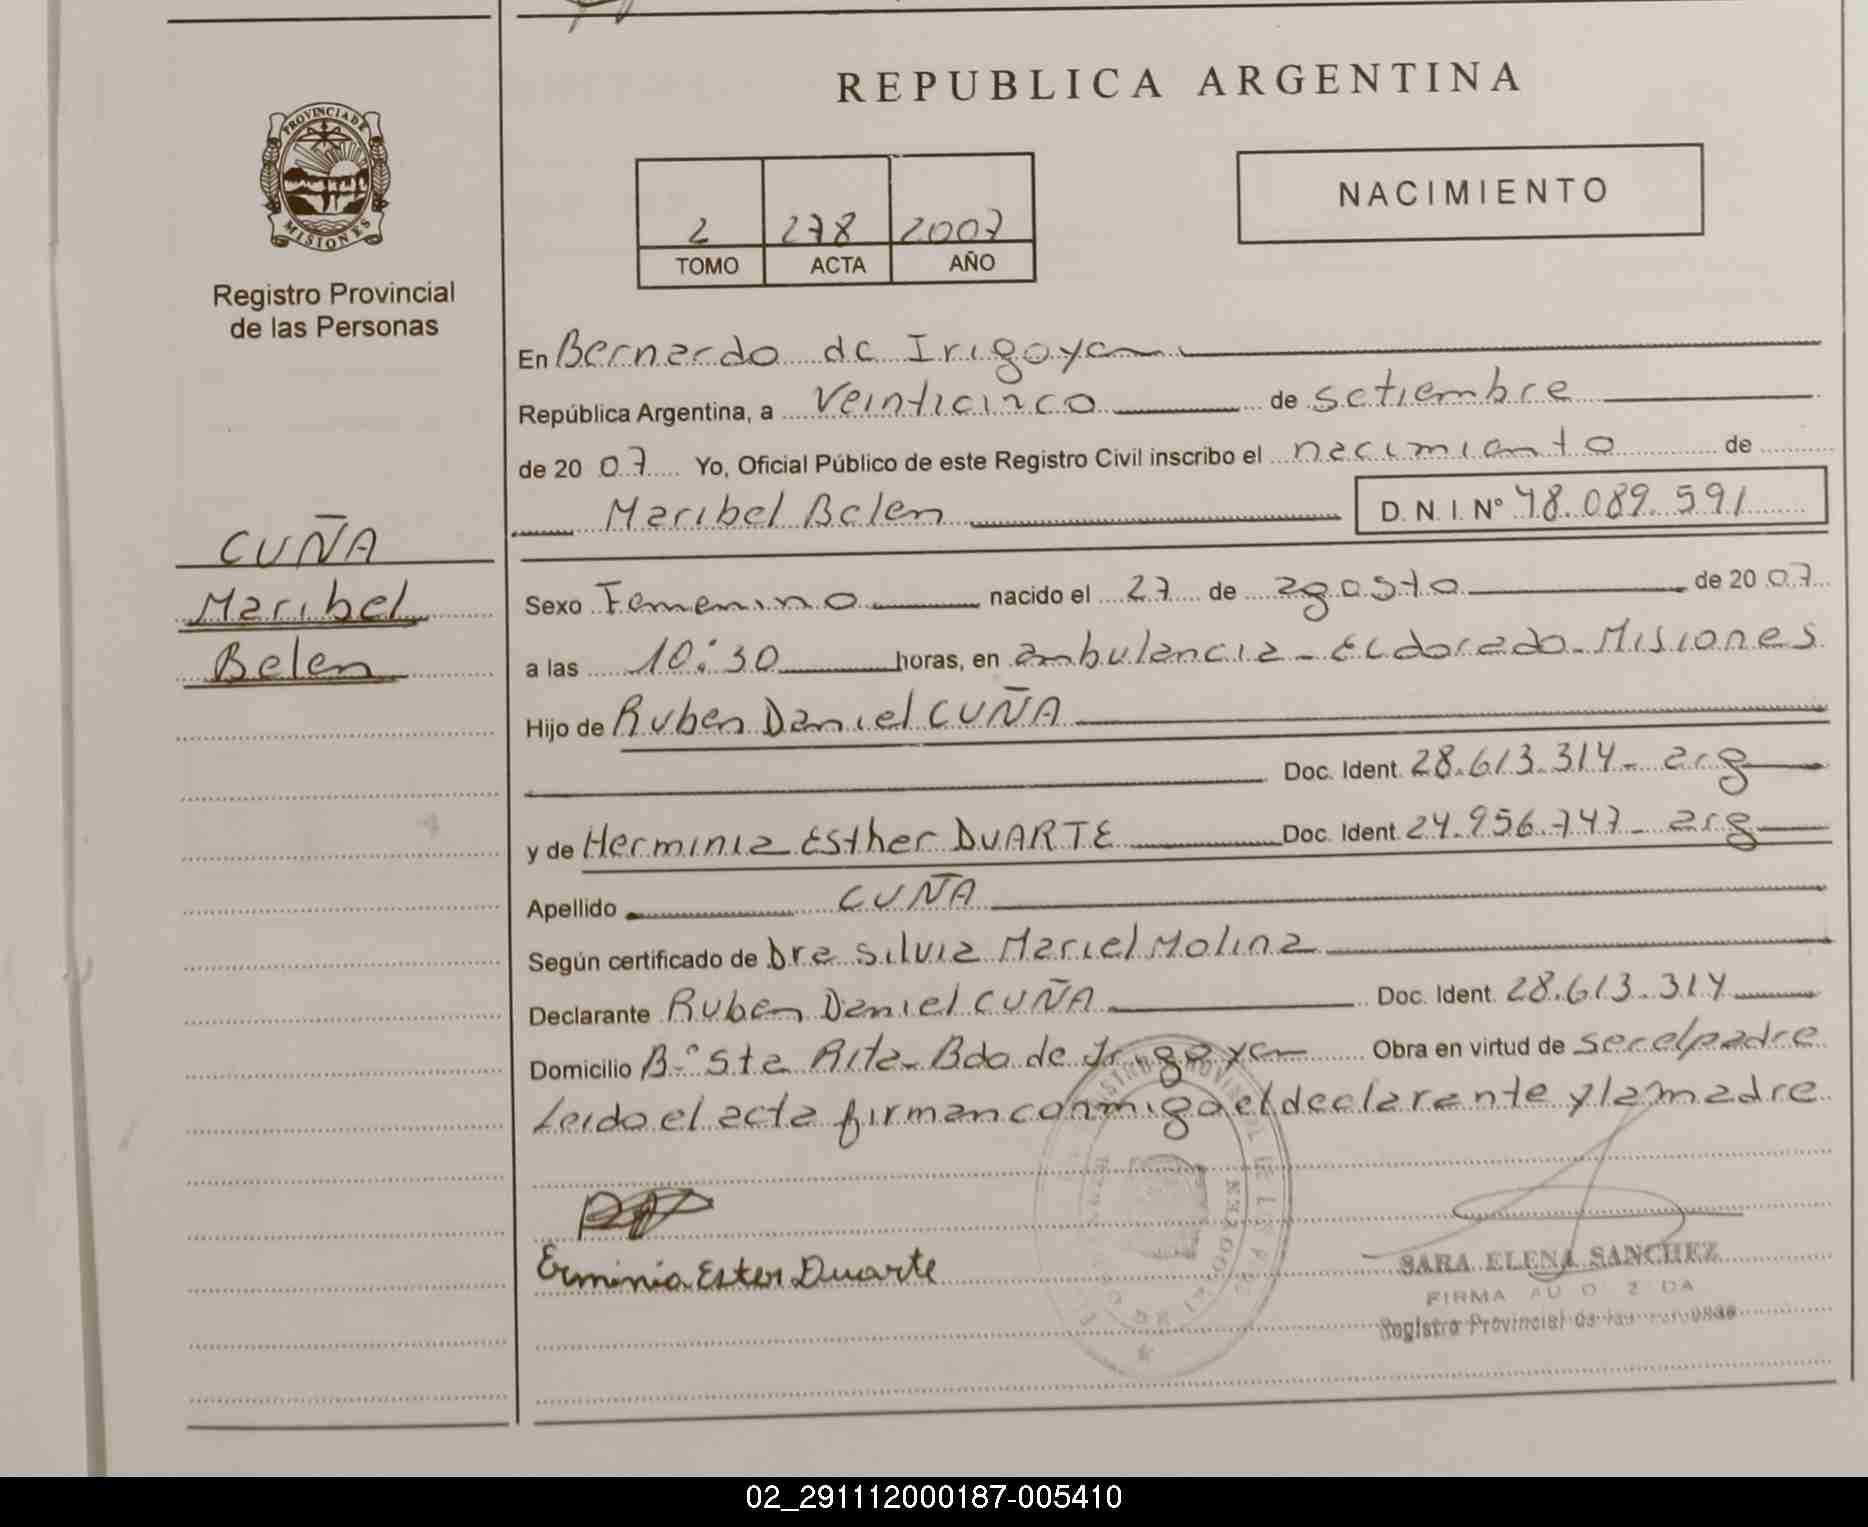 REPUBLICA ARGENTINA
PROVINCIA DE
MISIONES
Registro Provincial
de las Personas
2 278 2007
TOMO ACTA AÑO
NACIMIENTO
CUÑA
Maribel
Belen
En Bernardo de Irigoyen
República Argentina, a Veinticinco de setiembre
de 20 07 Yo, Oficial Público de este Registro Civil inscribo el nacimiento de
Maribel Belen D. N. I. Nº 48.089.591
Sexo Femenino nacido el 27 de agosto de 20 07
a las 10:30 horas, en ambulancia - Eldorado - Misiones
Hijo de Ruben Daniel CUÑA
Doc. Ident. 28.613.314 - arg
y de Herminia Esther DUARTE Doc. Ident. 24.956.747 - arg
Apellido CUÑA
Según certificado de Dra Silvia Mariel Molina
Declarante Ruben Daniel CUÑA Doc. Ident. 28.613.314
Domicilio Bº Sta Rita - Bdo de Irigoyen Obra en virtud de ser el padre
Leido el acta firman conmigo el declarante y la madre
Erminia Ester Duarte
SARA ELENA SANCHEZ
FIRMA
Registro Provincial de las
02_291112000187-005410